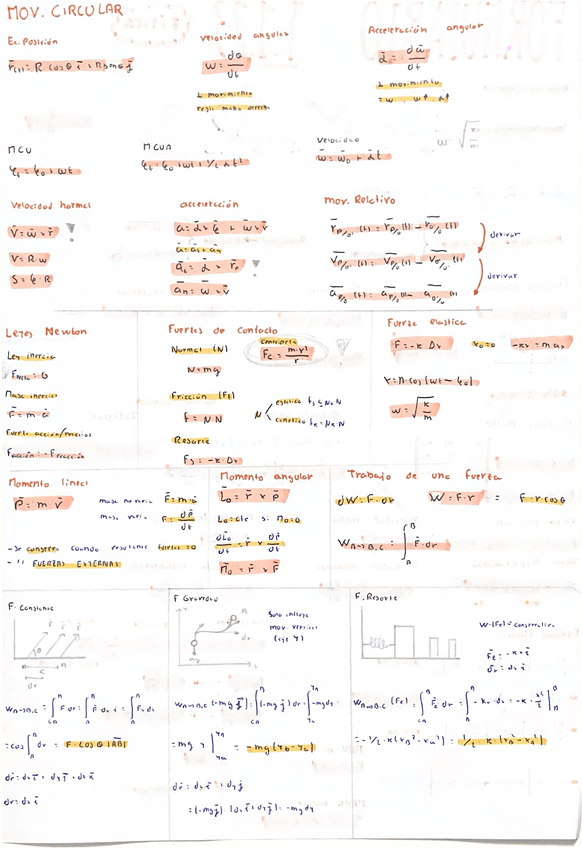 MOV. CIRCULAR
Ec. Posición
r̄(t) = R cosθ ī + R senθ j̄
velocidad angular
w = dθ/dt
⊥ movimiento
regla mano derecha
Aceleración angular
ᾱ = dw̄/dt
⊥ movimiento
MCU
φt = φ0 + wt
MCUA
φt = φ0 + wt + 1/2 αt²
velocidad
w̄ = w̄0 + ᾱt
velocidad normal
v̄ = w̄ × r̄ !
v = R w
S = φ · R
aceleración
ā = at + an
ān = w̄ × v̄
mov. Relativo
r̄P/O'(t) = r̄P/O(t) - r̄O'/O(t)
derivar
v̄P/O'(t) = v̄P/O(t) - v̄O'/O(t)
derivar
āP/O'(t) = āP/O(t) - āO'/O(t)
Leyes Newton
Ley inercia
FNeta = 0
Masa inercia
F̄ = m·ā
Fuerza acción/reacción
Facción = -Freacción
Fuerzas de contacto
Normal (N)
N = mg
centrípeta
Fc = m·v²/r
Fricción (Ff)
f = N N
N
estática fs ≤ Ns N
cinética fk = Nk N
Resorte
Fs = -k Dx
Fuerza elástica
F = -k Dx x0 = 0 -kx = m ax
x = A cos(wt - φ0)
w = √k/m
Momento lineal
P̄ = m·v̄
masa no varia F̄ = m·ā
masa varia F̄ = dP̄/dt
- se conserva cuando resultante fuerzas = 0
FUERZAS EXTERNAS
Momento angular
L̄0 = r̄ × p̄
L0 = cte si M0 = 0
dL̄0/dt = r̄ × dP̄/dt
M̄0 = r̄ × F̄
Trabajo de una fuerza
dW = F̄·dr W = F·r = F·r cosθ
WA→B,C = ∫ F̄·dr
F. Constante
WA→B,C = ∫ F̄·dr
= F·cosθ |AB|
dr̄ = dx ī + dy j̄ + dz k̄
dr = dx ī
F Gravedad
Solo influye
mov. vertical
(eje Y)
mg
= -mg(yB - yA)
dr̄ = dx ī + dy j̄
= (-mg j̄)·(dx ī + dy j̄) = -mg dy
F. Resorte
W(Fe) = conservativa
F̄e = -k x ī
dr = dx ī
= -1/2·k(xB² - xA²) = 1/2·k·(xB² - xA²)